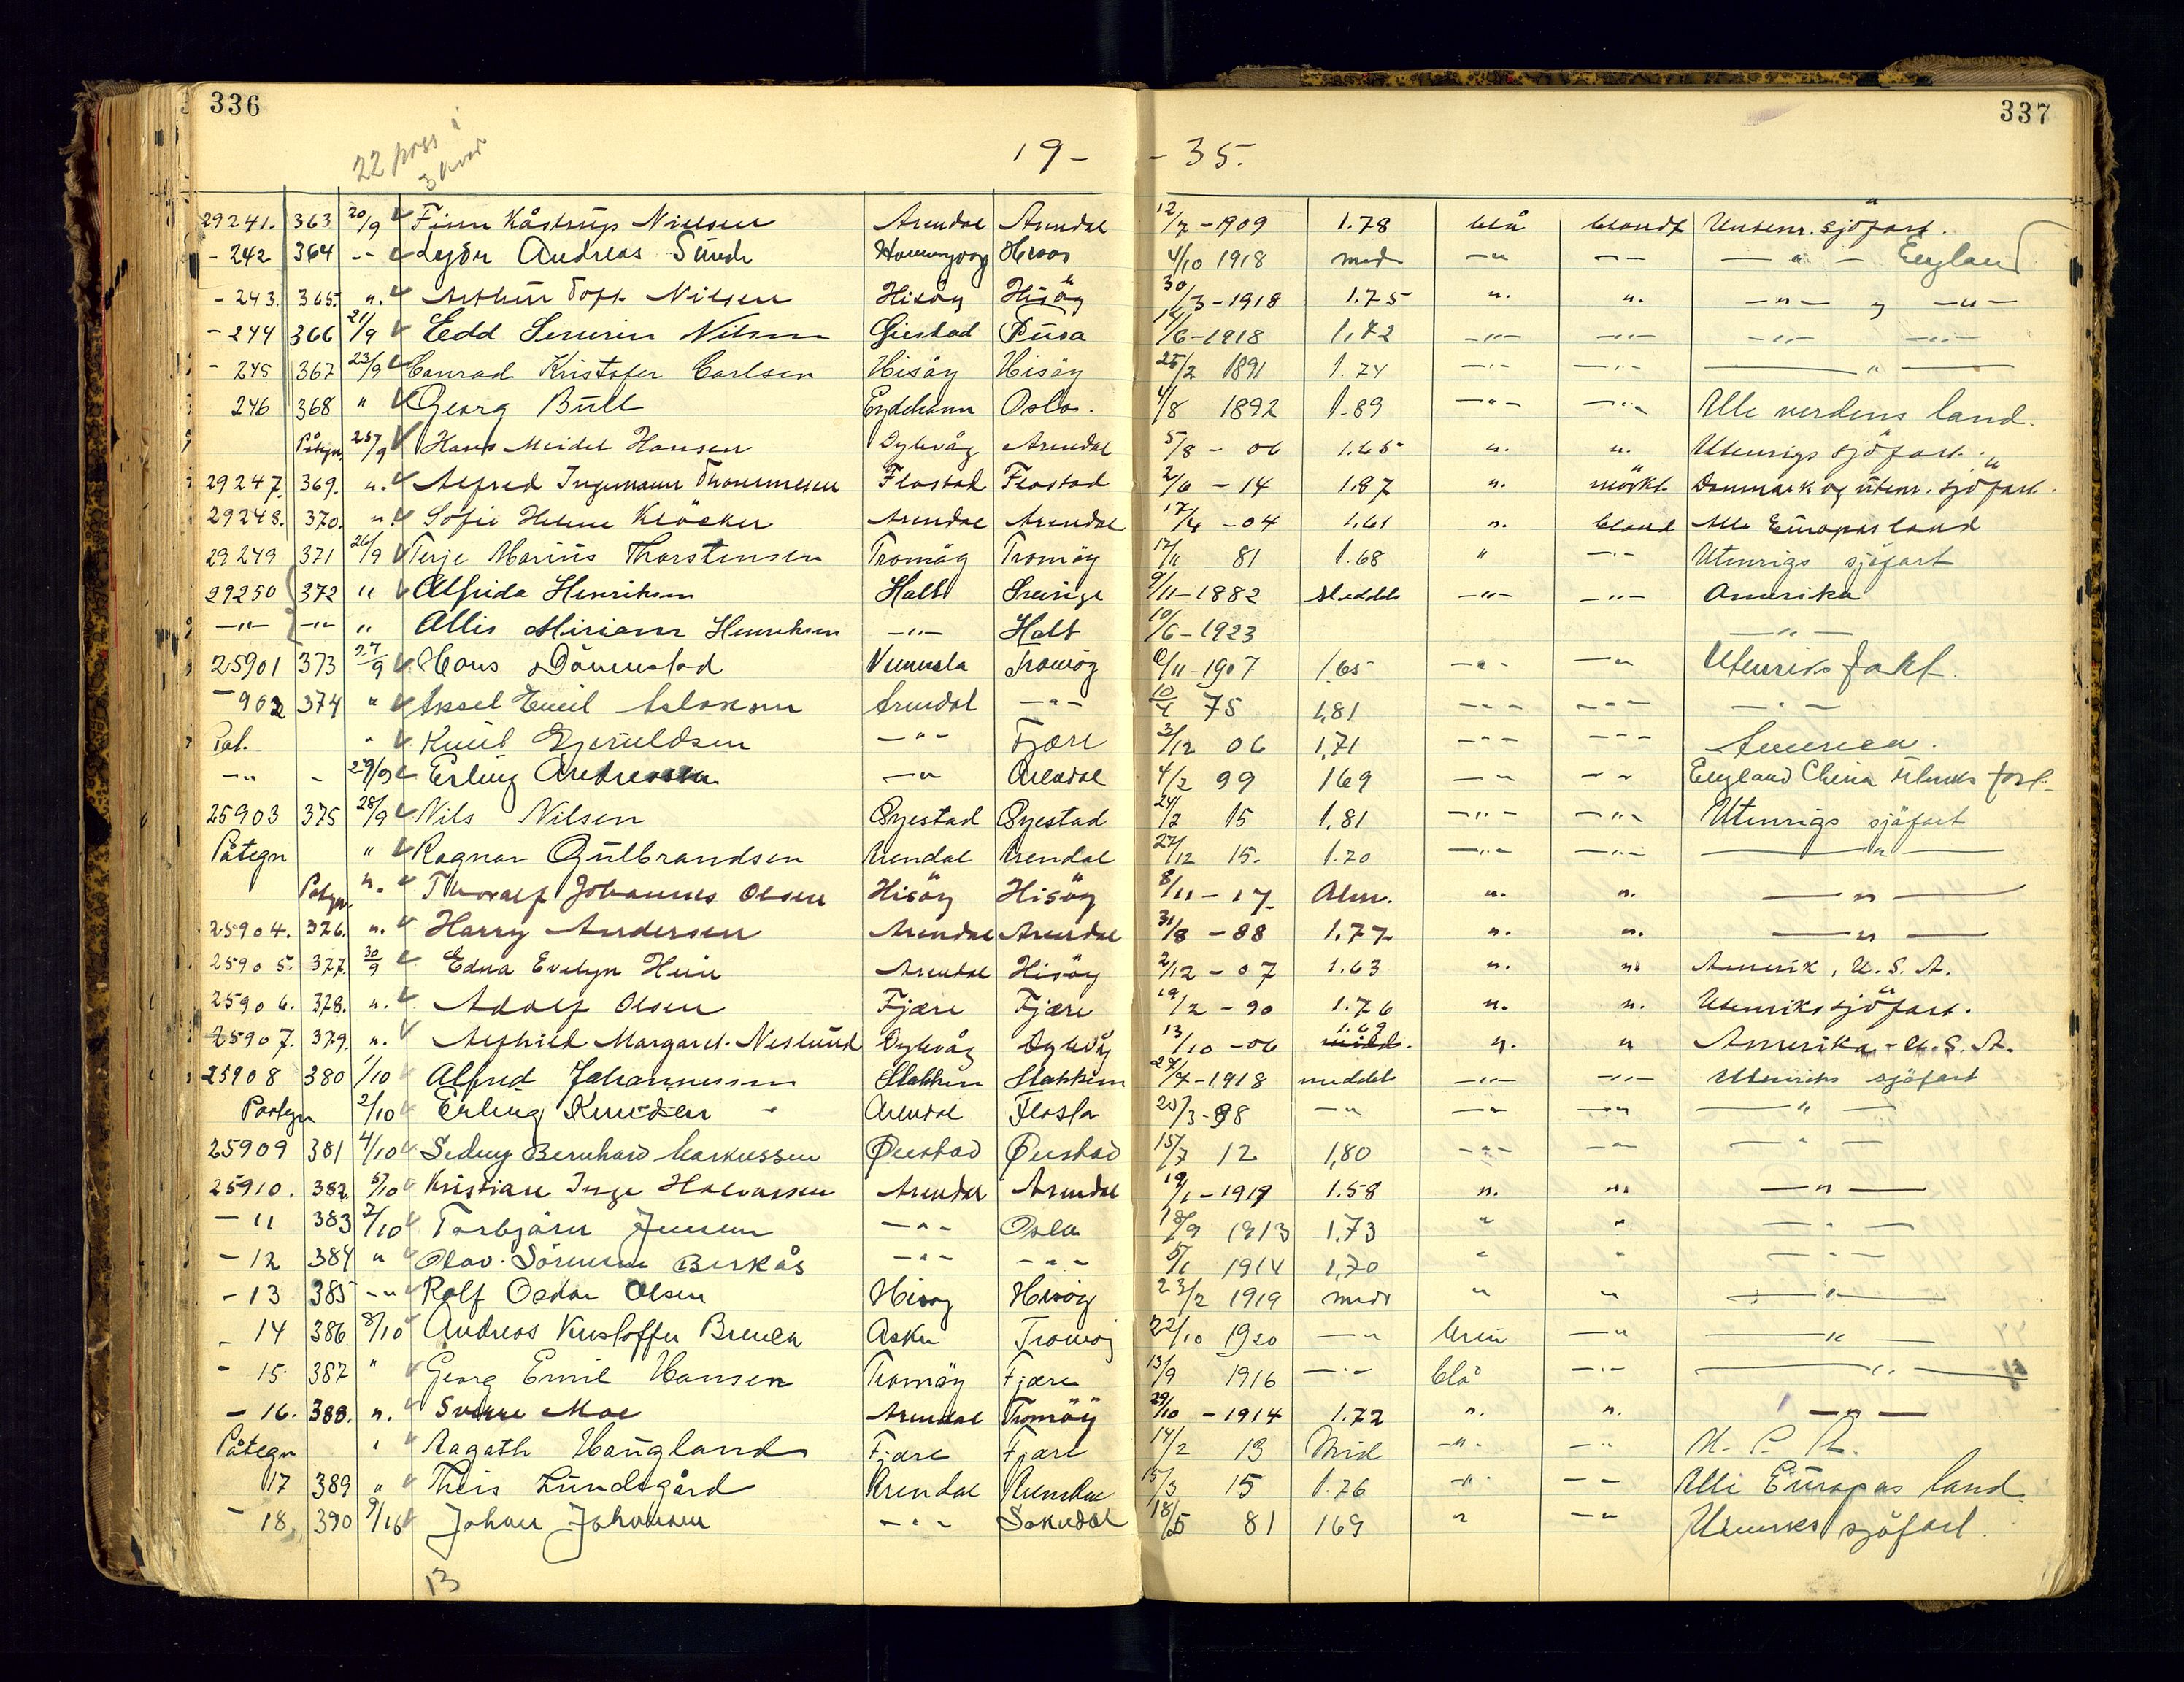 336
337
22 pass i
3 kvar
19 - - 35.
29241. 363 20/9 Finn Kåstrup Nielsen Arendal Arendal 12/7 - 1909 1.78 blå blondt Utenr. sjöfart.
- 242 364 - " Andreas Hisøy 4/10 1918 midd - " - - - " - England
- 243. 365 ". Arthur Toft Nilsen Hisöy Hisöy 30/3 - 1918 1.75 ". ". - " - " - " -
- 244 366 21/9 Edd Severin Nilsen Giestad Pusa /6 - 1918 1,72 - " - - " - - " - - " -
- 245 367 23/9 Conrad Kristofer Carlsen Hisöy Hisöy 25/2 1891 1.74 - " - - " - - " -
246 368 " Georg Bull Eydehavn Oslo. 4/8 1892 1.89 - " - - " - Alle verdens land.
Påtegn. 25/9 Hans Meidel Hansen Dybvåg Arendal 5/8 - 06 1.65 ". ". Utenrigs sjöfart.
29247. 369. ". Alfred Ingemann Thommesen Flostad Flostad 2/6 - 14 1.87 ". mörkt. Danmark og utenr. sjöfart.
29248. 370. ". Sofie Helene Klöcker Arendal Arendal 17/4 - 04 1.61 ". blond Alle Europas land
29249 371 26/9 Terje Marius Thorstensen Tromöy Tromöy 12/11 81 1.68 " - " - Utenrigs sjöfart
29250 372 " Alfrida Henriksen Holt Sverige 9/11 - 1882 Middels - " - - " - Amerika
- " - - " - " Allis Miriam Henriksen - " - Holt 10/6 - 1923 - " -
25901 373 27/9 Hans Dönnestad Vennesla Tromöy 6/11 - 1907 1.65 - " - - " Utenriks fart.
- 902 374 " Aksel Emil Aslaksen Arendal - " - 10/4 75 1,81 - " - - " - - " -
Pat. " Knut Gjeruldsen - " - Fjære 3/12 06 1,71 - " - - " - America.
- " - 27/9 Erling Andreassen - " Arendal 4/2 99 169 - " - " England China Utenriks fart.
25903 375 28/9 Nils Nilsen Öyestad Öyestad 24/2 15 1,81 - " - - " - Utenrigs sjöfart
Påtegn " Ragnar Gulbrandsen Arendal Arendal 27/12 15. 1.70 - " - - " - - " -
Påtegn. ". Thoralf Johannes Olsen Hisöy Hisöy 8/11 - 17 Alm. ". ". - " -
25904. 376. ". Harry Andersen Arendal Arendal 31/8 - 88 1.77 ". ". - " -
25905. 377. 30/9 Edna Evelyn Hein Arendal Hisöy 2/12 - 07 1.63 ". " Amerik, U.S.A.
25906. 378. ". Adolf Olsen Fjære Fjære 19/2 - 90 1.76 ". ". Utenriks sjöfart.
25907. 379. ". Asfrid Margaret Neslund Dybvåg Dybvåg 13/10 - 06 1.69 midd. ". " Amerika - U.S.A.
25908 380 1/10 Alfred Johannessen Stokken Stokken 27/4 - 1918 middels - " - - " - Utenriks sjöfart
Påtegn 2/10 Erling Knudsen Arendal Flosta 20/3 - 98 - " - " - " - " -
25909 381 4/10 Sedny Bernhard Markussen Øiestad Øiestad 15/7 12 1,80 - " - - " - " -
25910. 382. 5/10 Kristian Inge Halvorsen Arendal Arendal 19/1 - 1919 1.58 ". ". - " -
- 11 383 7/10 Torbjörn Jensen - " - Oslo 18/9 1913 1.73 " " - " -
- 12 384 " Olav Sörensen Birkås - " - - " - 5/1 1914 1,70 " " - " -
- 13 385 - " Rolf Oskar Olsen Hisøy Hisöy 23/2 1919 midd " " - " -
- 14 386 8/10 Andreas Kristoffer Asker Tromøy 22/10 1920 - " brun - " - " -
- 15. 387 " Georg Emil Hansen Tromöy Fjære 13/9 1916 - " - blå - " - - " -
- 16. 388. ". Sverre Moe Arendal Tromöy 29/10 - 1914 1.72 ". ". - " -
Påtegn " Aagoth Haugland Fjære Fjære 14/2 13 Mid - " - - " U.S.A.
17 389 " Theis Lundsgård Arendal Arendal 15/3 15 1.76 - " - - - Alle Europas land.
- 18. 390 9/10 Johan Johansen - " - Sokndal 18/5 81 169 " - " Utenriks sjöfart.
13